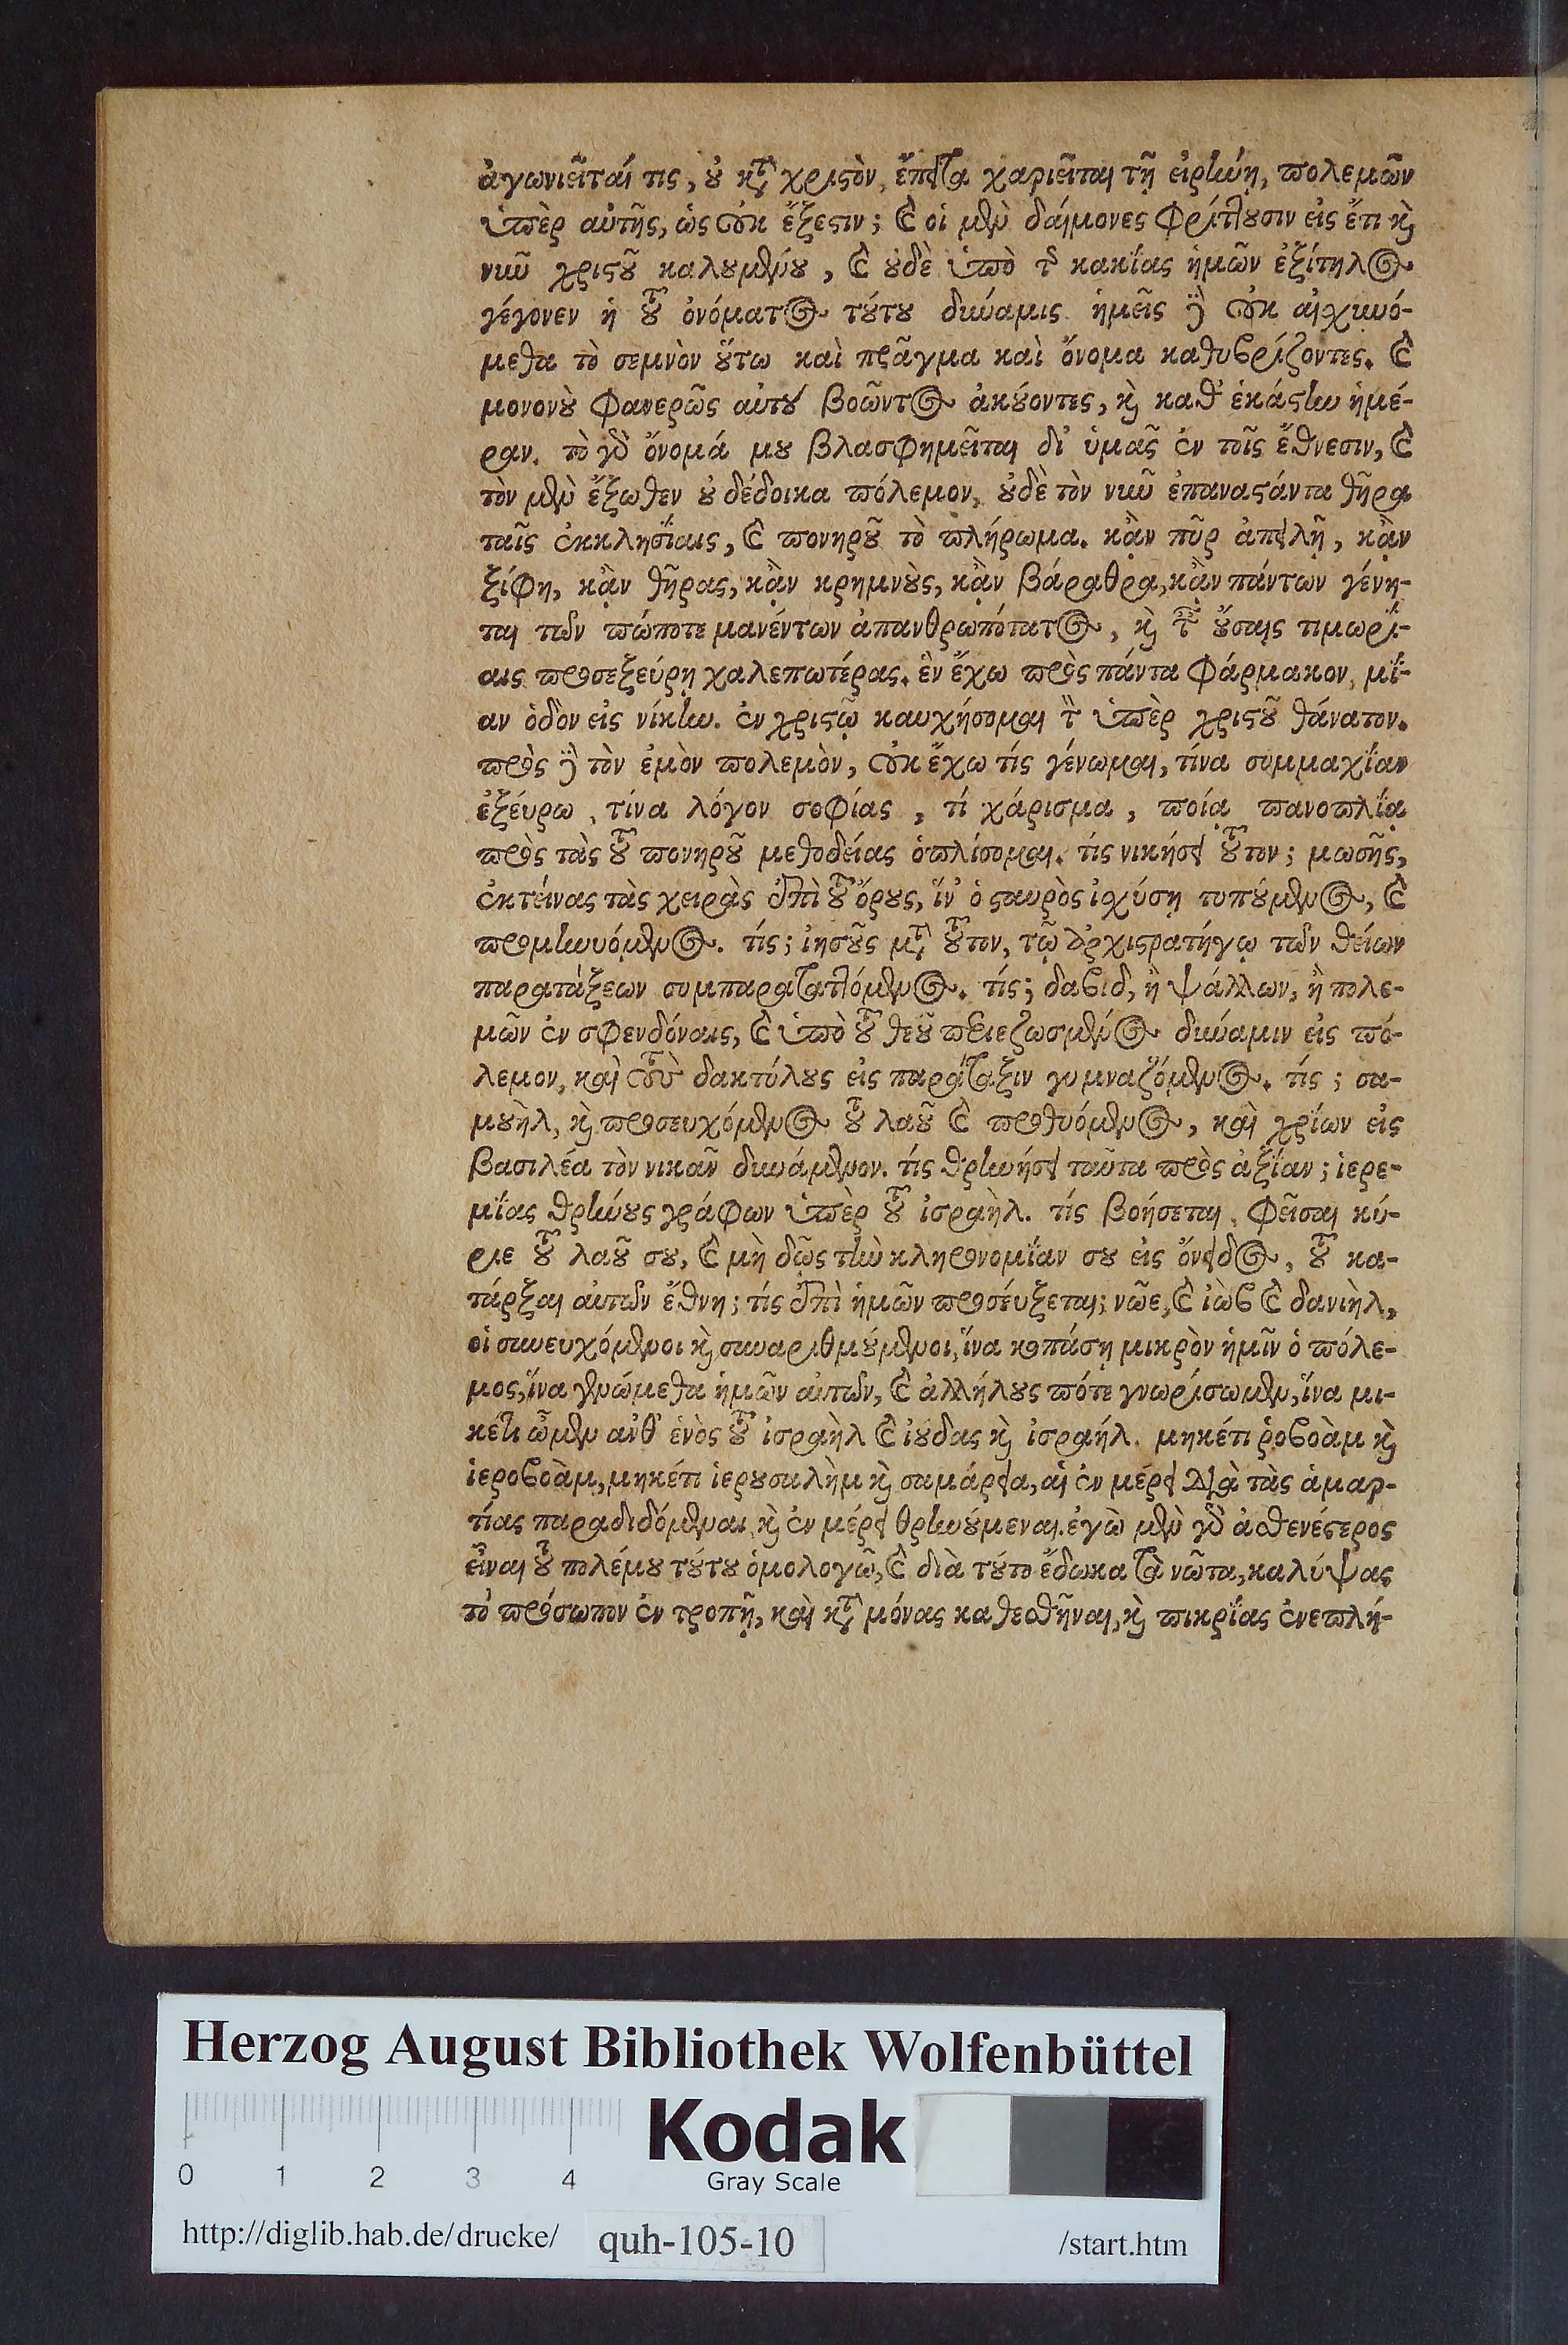 ἀγωνιεῖταί τις, οὐ κατὰ χριστὸν, ἔπειτα χαριεῖται τῇ εἰρήνῃ, πολεμῶν
ὑπὲρ αὐτῆς, ὡς οὐκ ἔξεστιν; καὶ οἱ μὲν δαίμονες φρίττουσιν εἰς ἔτι καὶ
νῦν χριστοῦ καλουμένου, καὶ οὐδὲ ὑπὸ τῆς κακίας ἡμῶν ἐξίτηλος
γέγονεν ἡ τοῦ ὀνόματος τούτου δύναμις. ἡμεῖς δὲ οὐκ αἰσχυνό-
μεθα τὸ σεμνὸν οὕτω καὶ πρᾶγμα καὶ ὄνομα καθυβρίζοντες. καὶ
μονονοὺ φανερῶς αὐτοῦ βοῶντος ἀκούοντες, καὶ καθ' ἑκάστην ἡμέ-
ραν. τὸ γὰρ ὄνομά μου βλασφημεῖται δι' ὑμᾶς ἐν τοῖς ἔθνεσιν, καὶ
τὸν μὲν ἔξωθεν οὐ δέδοικα πόλεμον, οὐδὲ τὸν νῦν ἐπαναστάντα θῆρα
ταῖς ἐκκλησίαις, καὶ πονηροῦ τὸ πλήρωμα. κἂν πῦρ ἀπειλῇ, κἂν
ξίφη, κἂν θῆρας, κἂν κρημνοὺς, κἂν βάραθρα, κἂν πάντων γένη-
ται τῶν πώποτε μανέντων ἀπανθρωπότατος, καὶ ταῖς οὔσαις τιμωρί-
αις προσεξεύρῃ χαλεπωτέρας. ἓν ἔχω πρὸς πάντα φάρμακον, μί-
αν ὁδὸν εἰς νίκην. ἐν χριστῷ καυχήσομαι τὸν ὑπὲρ χριστοῦ θάνατον.
πρὸς δὲ τὸν ἐμὸν πολεμὸν, οὐκ ἔχω τίς γένωμαι, τίνα συμμαχίαν
ἐξέυρω, τίνα λόγον σοφίας, τί χάρισμα, ποίᾳ πανοπλίᾳ
πρὸς τὰς τοῦ πονηροῦ μεθοδείας ὁπλίσομαι. τίς νικήσει τοῦτον; μωσῆς,
ἐκτείνας τὰς χειρὰς ἐπὶ τοῦ ὄρους, ἵν' ὁ σταυρὸς ἰσχύσῃ τυπούμενος, καὶ
προμηνυόμενος. τίς; ἰησοῦς μετὰ τοῦτον, τῷ ἀρχιστρατήγῳ τῶν θείων
παρατάξεων συμπαραταττόμενος. τίς; δαβιδ, ἢ ψάλλων, ἢ πολε-
μῶν ἐν σφενδόναις, καὶ ὑπὸ τοῦ θεοῦ περιεζωσμένος δύναμιν εἰς πό-
λεμον, καὶ τοὺς δακτύλους εἰς παράταξιν γυμναζόμενος. τίς; σα-
μουὴλ, καὶ προσευχόμενος τοῦ λαοῦ καὶ προθυόμενος, καὶ χρίων εἰς
βασιλέα τὸν νικᾶν δυνάμενον. τίς θρηνήσει ταῦτα πρὸς ἀξίαν; ἱερε-
μίας θρήνους γράφων ὑπὲρ τοῦ ἰσραὴλ. τίς βοήσεται, φεῖσαι κύ-
ριε τοῦ λαοῦ σου, καὶ μὴ δῷς τὴν κληρονομίαν σου εἰς ὄνειδος, τοῦ κα-
τάρξαι αὐτῶν ἔθνη; τίς ἐπὶ ἡμῶν προσέυξεται; νῶε, καὶ ἰὼβ καὶ δανιὴλ,
οἱ συνευχόμενοι καὶ συναριθμούμενοι, ἵνα κοπάσῃ μικρὸν ἡμῖν ὁ πόλε-
μος, ἵνα γενώμεθα ἡμῶν αὐτῶν, καὶ ἀλλήλους πότε γνωρίσωμεν, ἵνα μι-
κέτι ὦμεν ανθ' ἑνὸς τοῦ ἰσραὴλ καὶ ἰουδας καὶ ἰσραήλ. μηκέτι ῥοβοὰμ καὶ
ἱεροβοὰμ, μηκέτι ἱερουσαλὴμ καὶ σαμάρεια, αἱ ἐν μέρει διὰ τὰς ἁμαρ-
τίας παραδιδόμεναι, καὶ ἐν μέρει θρηνούμεναι. ἐγὼ μὲν γὰρ ἀσθενέστερος
εἶναι τοῦ πολέμου τούτου ὁμολογῶ, καὶ διὰ τοῦτο ἔδωκα τὰ νῶτα, καλύψας
τὸ πρόσωπον ἐν τροπῇ, καὶ κατὰ μόνας καθεσθῆναι, καὶ πικρίας ἐνεπλή-
Herzog August Bibliothek Wolfenbüttel
0 1 2 3 4
Kodak
Gray Scale
http://diglib.hab.de/drucke/ quh-105-10 /start.htm